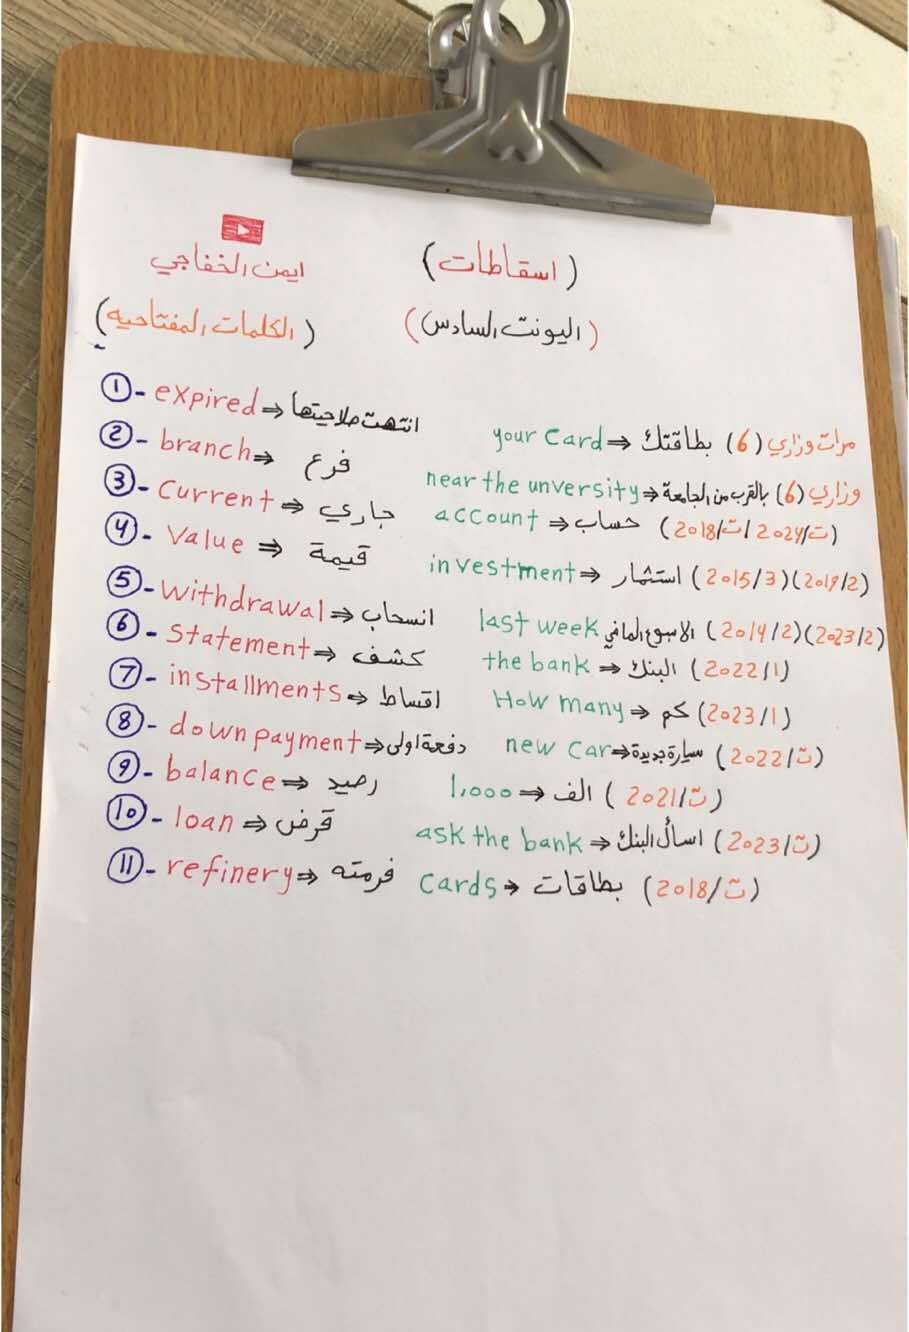 (اسقاطات)
ايمن الخفاجي
(اليونت السادس)
(الكلمات المفتاحيه)
1- expired ⇒ انتهت صلاحيتها your card ⇒ بطاقتك (6) مرات وزاري
2- branch ⇒ فرع near the unversity ⇒ بالقرب من الجامعة (6) وزاري
3- Current ⇒ جاري account ⇒ حساب (2018/ت/2024/ت)
4- Value ⇒ قيمة investment ⇒ استثمار (2015/3)(2019/2)
5- withdrawal ⇒ انسحاب last week الاسبوع الماضي (2014/2)(2023/2)
6- Statement ⇒ كشف the bank ⇒ البنك (2022/1)
7- installments ⇒ اقساط How many ⇒ كم (2023/1)
8- down payment ⇒ دفعة اولى new car ⇒ سيارة جديدة (2022/ت)
9- balance ⇒ رصيد 1,000 ⇒ الف (2021/ت)
10- loan ⇒ قرض ask the bank ⇒ اسأل البنك (2023/ت)
11- refinery ⇒ فرمته cards ⇒ بطاقات (2018/ت)